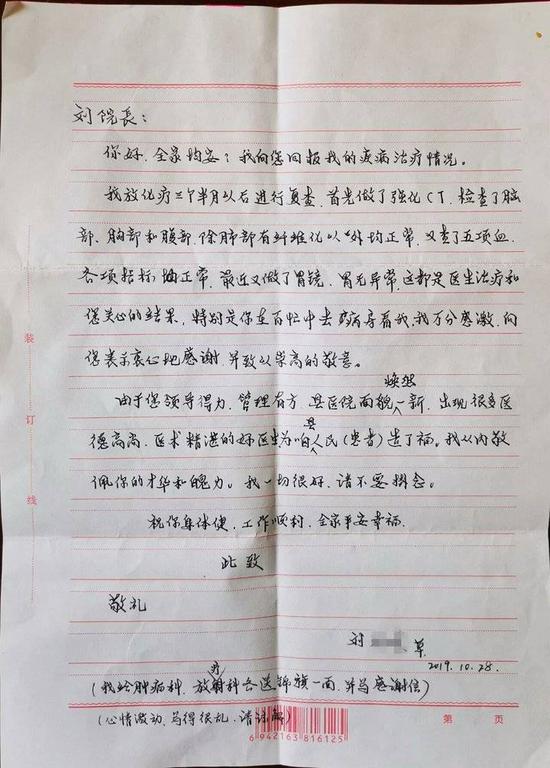 刘院長：
你好、全家均安？我向您回报我的疾病治疗情况。
我放化疗三个半月以后进行复查、首先做了强化CT、检查了脑
部、胸部和腹部、除肺部有纤维化以外均正常、又查了五项血、
各项指标均正常、最近又做了胃镜、胃无异常、这都是医生治疗和
您关心的结果，特别是你在百忙中去病房看我、我万分感激、向
您表示衷心地感谢、并致以崇高的敬意。
焕然
由于您领导得力、管理有方、县医院面貌一新、出现很多医
县
德高尚、医术精湛的好医生为咱人民（患者）造了福。我从内敬
佩你的才华和魄力。我一切很好、请不要掛念。
祝你身体健、工作顺利、全家平安幸福、
此致
敬礼
刘 草
2019.10.28.
疗
（我给肿瘤科、放射科各送锦旗一面、并写感谢信）
（心情激动、写得很乱、请谅解）
装
订
线
6 942163 816125
第 页